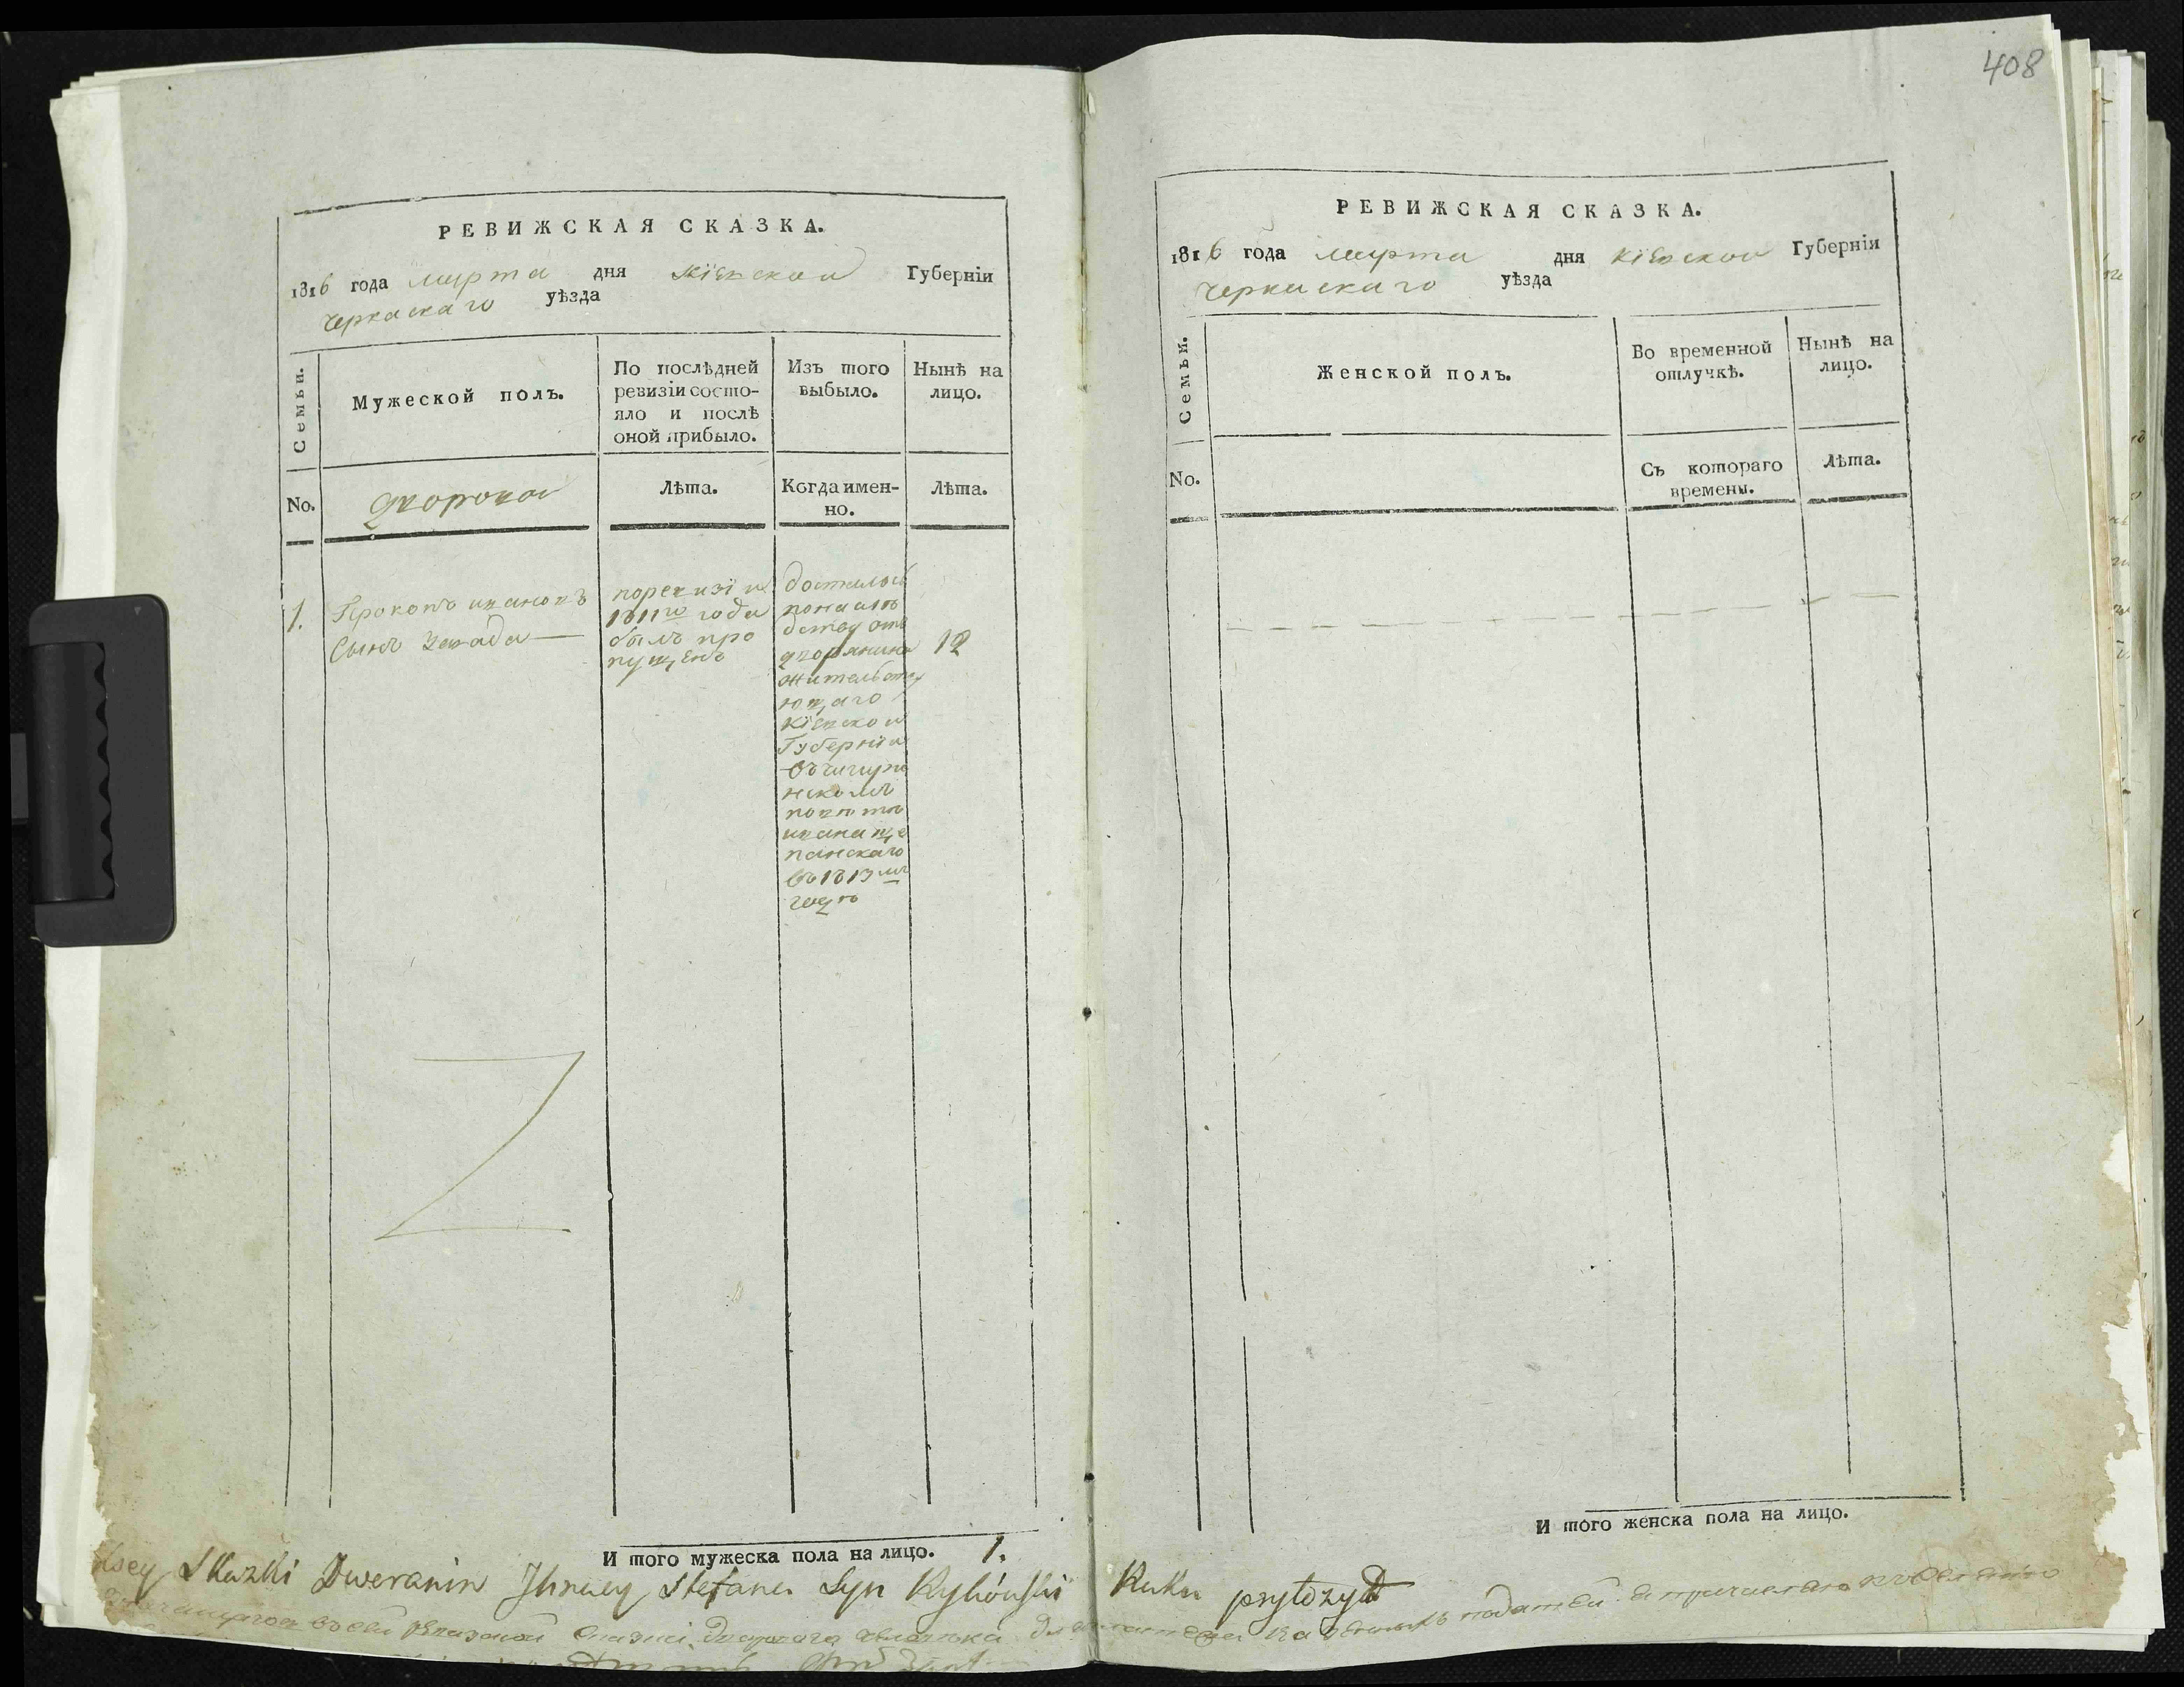 408
РЕВИЖСКАЯ СКАЗКА.
1816 года марта дня кіевской Губерніи
черкаскаго уѣзда
Семьи.
Мужеской полъ.
По послѣдней
ревизіи состо-
яло и послѣ
оной прибыло.
Изъ того
выбыло.
Нынѣ на
лицо.
No.
дворовой
Лѣта.
Когда имен-
но.
Лѣта.
1.
Прокопъ ивановъ
сынъ
поревизіи
1811го года
былъ про
пущенъ
досталси
понаслѣ
дству отъ
дворянина
жительству
ющаго
кіевской
Губерніи
въчигири
нскомъ
повѣтѣ
ивана ще
панскаго
въ1813мъ
годѣ
12
И того мужеска пола на лицо. 1.
РЕВИЖСКАЯ СКАЗКА.
1816 года марта дня кіевской Губерніи
черкаскаго уѣзда
Семьи.
Женской полъ.
Во временной
отлучкѣ.
Нынѣ на
лицо.
No.
Съ котораго
времены.
Лѣта.
И того женска пола на лицо.
Skazki Dweranin Stefanu Syn Ruku pryłozył
сей ревизской сказкѣ человѣка податей